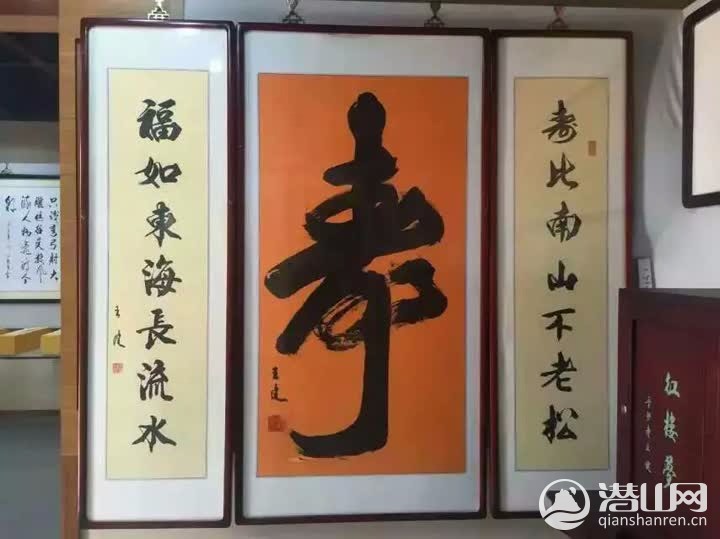 寿比南山不老松
寿
王健
福如東海長流水
王健
红楼梦
潜山网
qianshanren.cn